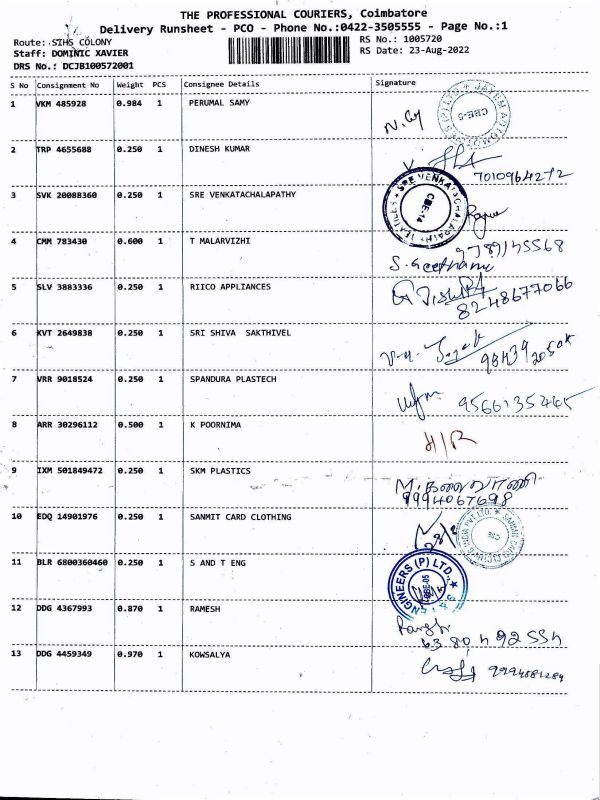 THE PROFESSIONAL COURIERS, Coimbatore
Delivery Runsheet - PCO - Phone No.:0422-3505555 - Page No.:1
Route: SIHS COLONY
RS No.: 1005720
Staff: DOMINIC XAVIER
RS Date: 23-Aug-2022
DRS No.: DCJB100572001
S No Consignment No Weight PCS Consignee Details Signature
1 VKM 485928 0.984 1 PERUMAL SAMY
CBE-5
2 TRP 4655688 0.250 1 DINESH KUMAR
7010964272
3 SVK 20088360 0.250 1 SRE VENKATACHALAPATHY
SRE VENKATACHALAPATHI TEXTILES
CBE-14
4 CMM 783430 0.600 1 T MALARVIZHI
9789145568
S. Geethamu
5 SLV 3883336 0.250 1 RIICO APPLIANCES
8248677066
6 KVT 2649838 0.250 1 SRI SHIVA SAKTHIVEL
7 VRR 9018524 0.250 1 SPANDURA PLASTECH
9566135465
8 ARR 30296112 0.500 1 K POORNIMA
H/R
9 IXM 501849472 0.250 1 SKM PLASTICS
9994067698
10 EDQ 14901976 0.250 1 SANMIT CARD CLOTHING
11 BLR 6800360460 0.250 1 S AND T ENG
ENGINEERS (P) LTD.
CBE-05
12 DDG 4367993 0.870 1 RAMESH
13 DDG 4459349 0.970 1 KOWSALYA